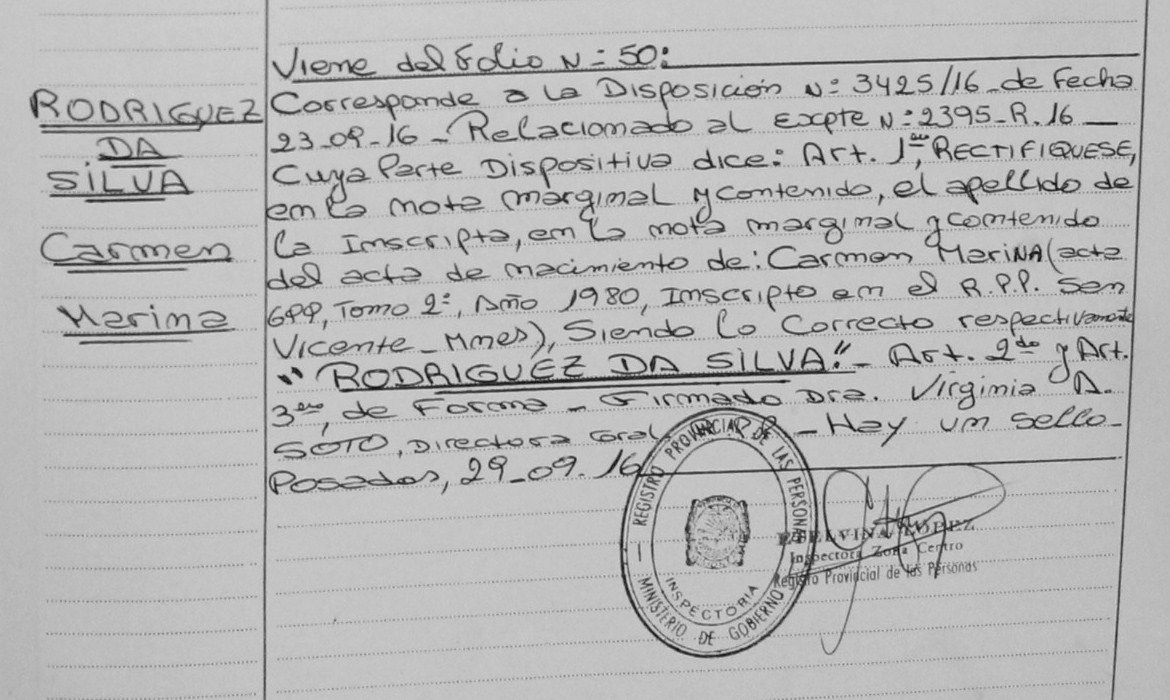 RODRIGUEZ
DA
SILVA
Carmen
Marina
Viene del Folio N=50:
Corresponde a la Disposición N=3425/16_de Fecha
23_09_16_Relacionado al Expte N=2395_R.16_
Cuya Parte Dispositiva dice: Art. 1ero, RECTIFIQUESE,
en la nota marginal y contenido, el apellido de
la Inscripta, en la nota marginal y contenido
del acta de nacimiento de: Carmen MariNA (acta
699, Tomo 2º, Año 1980, Inscripto en el R.P.P. San
Vicente_Mnes), Siendo lo Correcto respectivamente
"RODRIGUEZ DA SILVA"_ Art. 2do y Art.
3ero, de Forma_ Firmado Dra. Virginia A.
SOTO, Directora Gral. _ Hay un sello_
Posadas, 29_09.16
REGISTRO PROVINCIAL DE LAS PERSONAS
INSPECTORIA
MINISTERIO DE GOBIERNO
ELVINA LOPEZ
Inspectora Zona Centro
Registro Provincial de las Personas